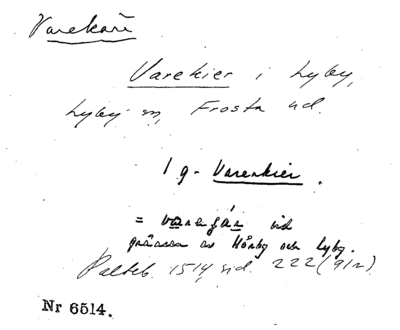 Varekärr
Varekier i Lyby,
Lyby sn, Frosta hd.
1 g. Varenkier.
= varagár vid
gränsen av Hörby och Lyby.
Palteb. 1514 sid. 222 (912)
Nr 6514.